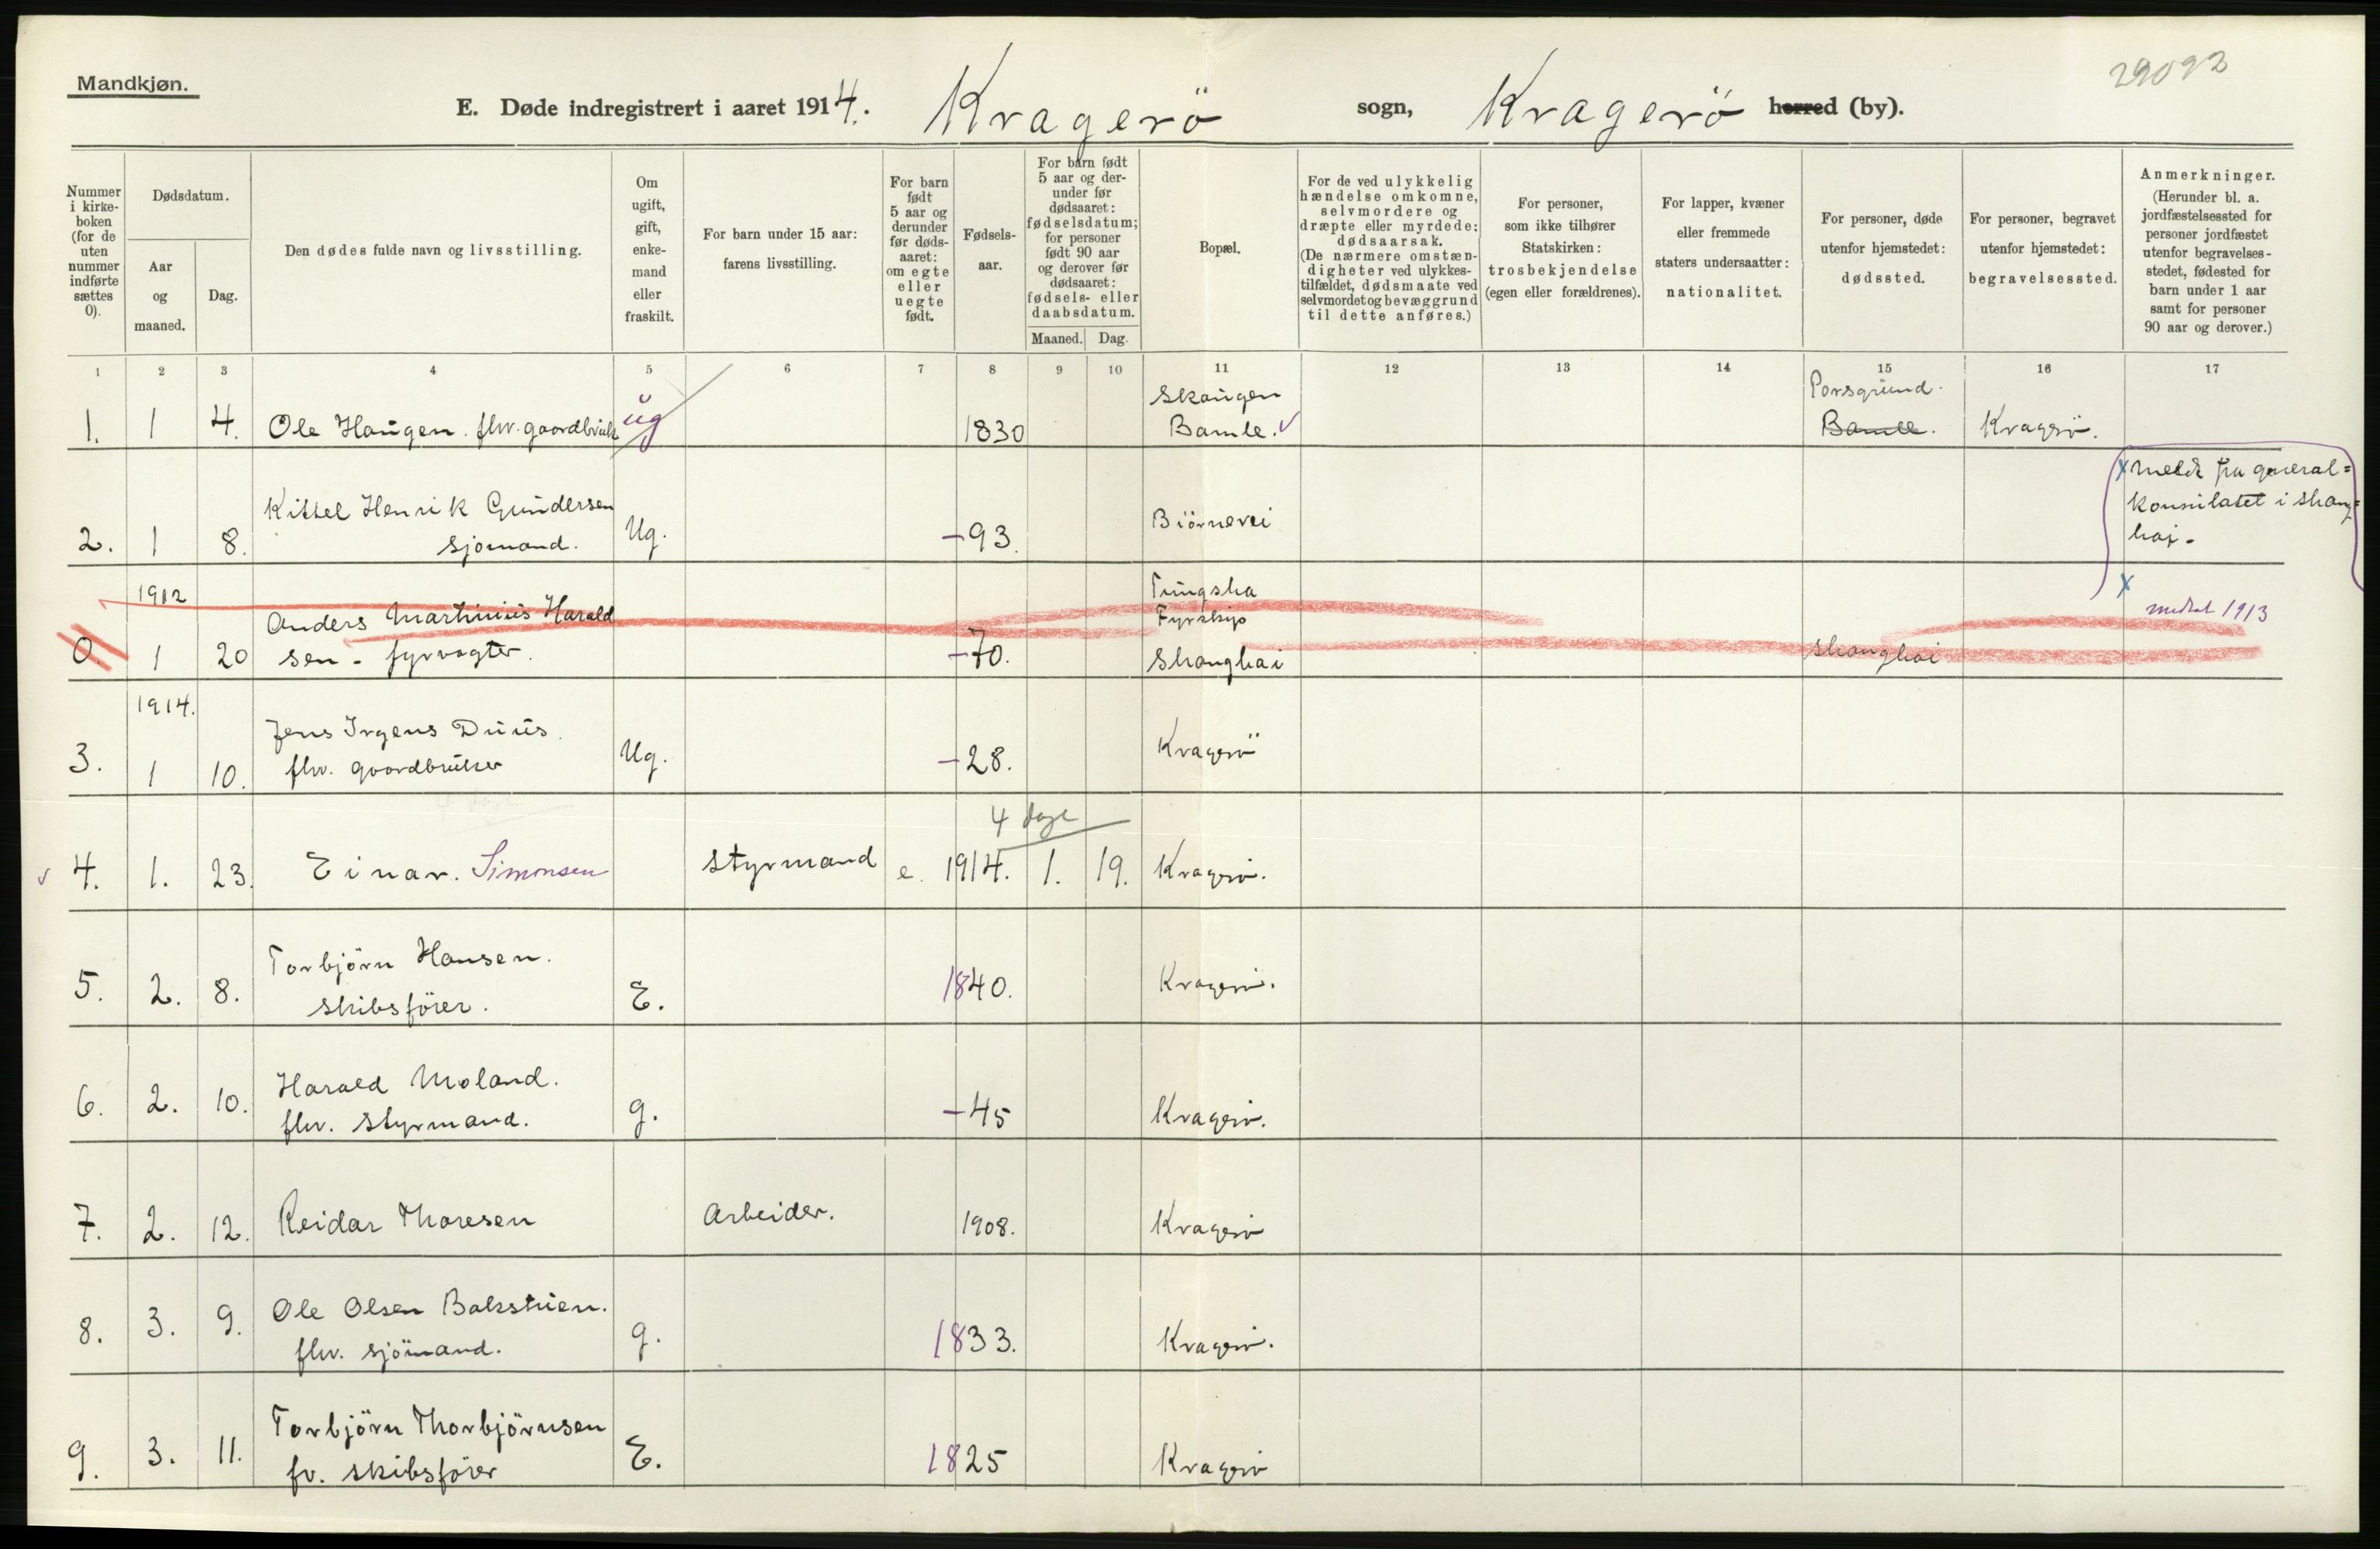 29092
Mandkjøn.
E. Døde indregistrert i aaret 1914. Kragerö sogn, Kragerö herred (by).
Nummer i kirkeboken (for de uten nummer indførte sættes 0).
Dødsdatum.
Aar og maaned.
Dag.
Den dødes fulde navn og livsstilling.
Om ugift, gift, enkemand eller fraskilt.
For barn under 15 aar: farens livsstilling.
For barn født 5 aar og derunder før dødsaaret: om egte eller uegte født.
Fødselsaar.
For barn født 5 aar og derunder før dødsaaret: fødselsdatum; for personer født 90 aar og derover før dødsaaret: fødsels- eller daabsdatum.
Maaned. Dag.
Bopæl.
For de ved ulykkelig hændelse omkomne, selvmordere og dræpte eller myrdede: dødsaarsak. (De nærmere omstændigheter ved ulykkestilfældet, dødsmaate ved selvmordet og bevæggrund til dette anføres.)
For personer, som ikke tilhører Statskirken: trosbekjendelse (egen eller forældrenes).
For lapper, kvæner eller fremmede staters undersaatter: nationalitet.
For personer, døde utenfor hjemstedet: dødssted.
For personer, begravet utenfor hjemstedet: begravelsessted.
Anmerkninger. (Herunder bl. a. jordfæstelsessted for personer jordfæstet utenfor begravelsesstedet, fødested for barn under 1 aar samt for personer 90 aar og derover.)
1 2 3 4 5 6 7 8 9 10 11 12 13 14 15 16 17
Skaugen Porsgrund.
1. 1 4. Ole Haugen. fhv. gaardbruk ug 1830 Bamle. Bamle. Kragerö.
x meldt fra general=
konsulatet i Shang=
hai.
Kittel Henrik Gundersen
2. 1 8. sjomand. Ug. -93. Biörnevei
1912 Tungsha x
Anders Martinius Harald Fyrskip medtat 1913
0. 1 20 sen - fyrvogter. -70. Shanghai Shanghai
1914.
Jens Irgens Duus.
3. 1 10. fhv. gaardbruker Ug. -28. Kragerö
4 dage
4. 1. 23. Einar. Simonsen styrmand e. 1914. 1. 19. Kragerö.
Torbjörn Hansen.
5. 2. 8. skibsförer. E. 1840. Kragerö.
Harald Moland.
6. 2. 10. fhv. styrmand. g. -45 Kragerö.
7. 2. 12. Reidar Thoresen Arbeider. 1908. Kragerö
Ole Olsen
8. 3. 9. fhv. sjömand. g. 1833. Kragerö.
Torbjörn Thorbjörnsen
9. 3. 11. fv. skibsförer E. 1825 Kragerö